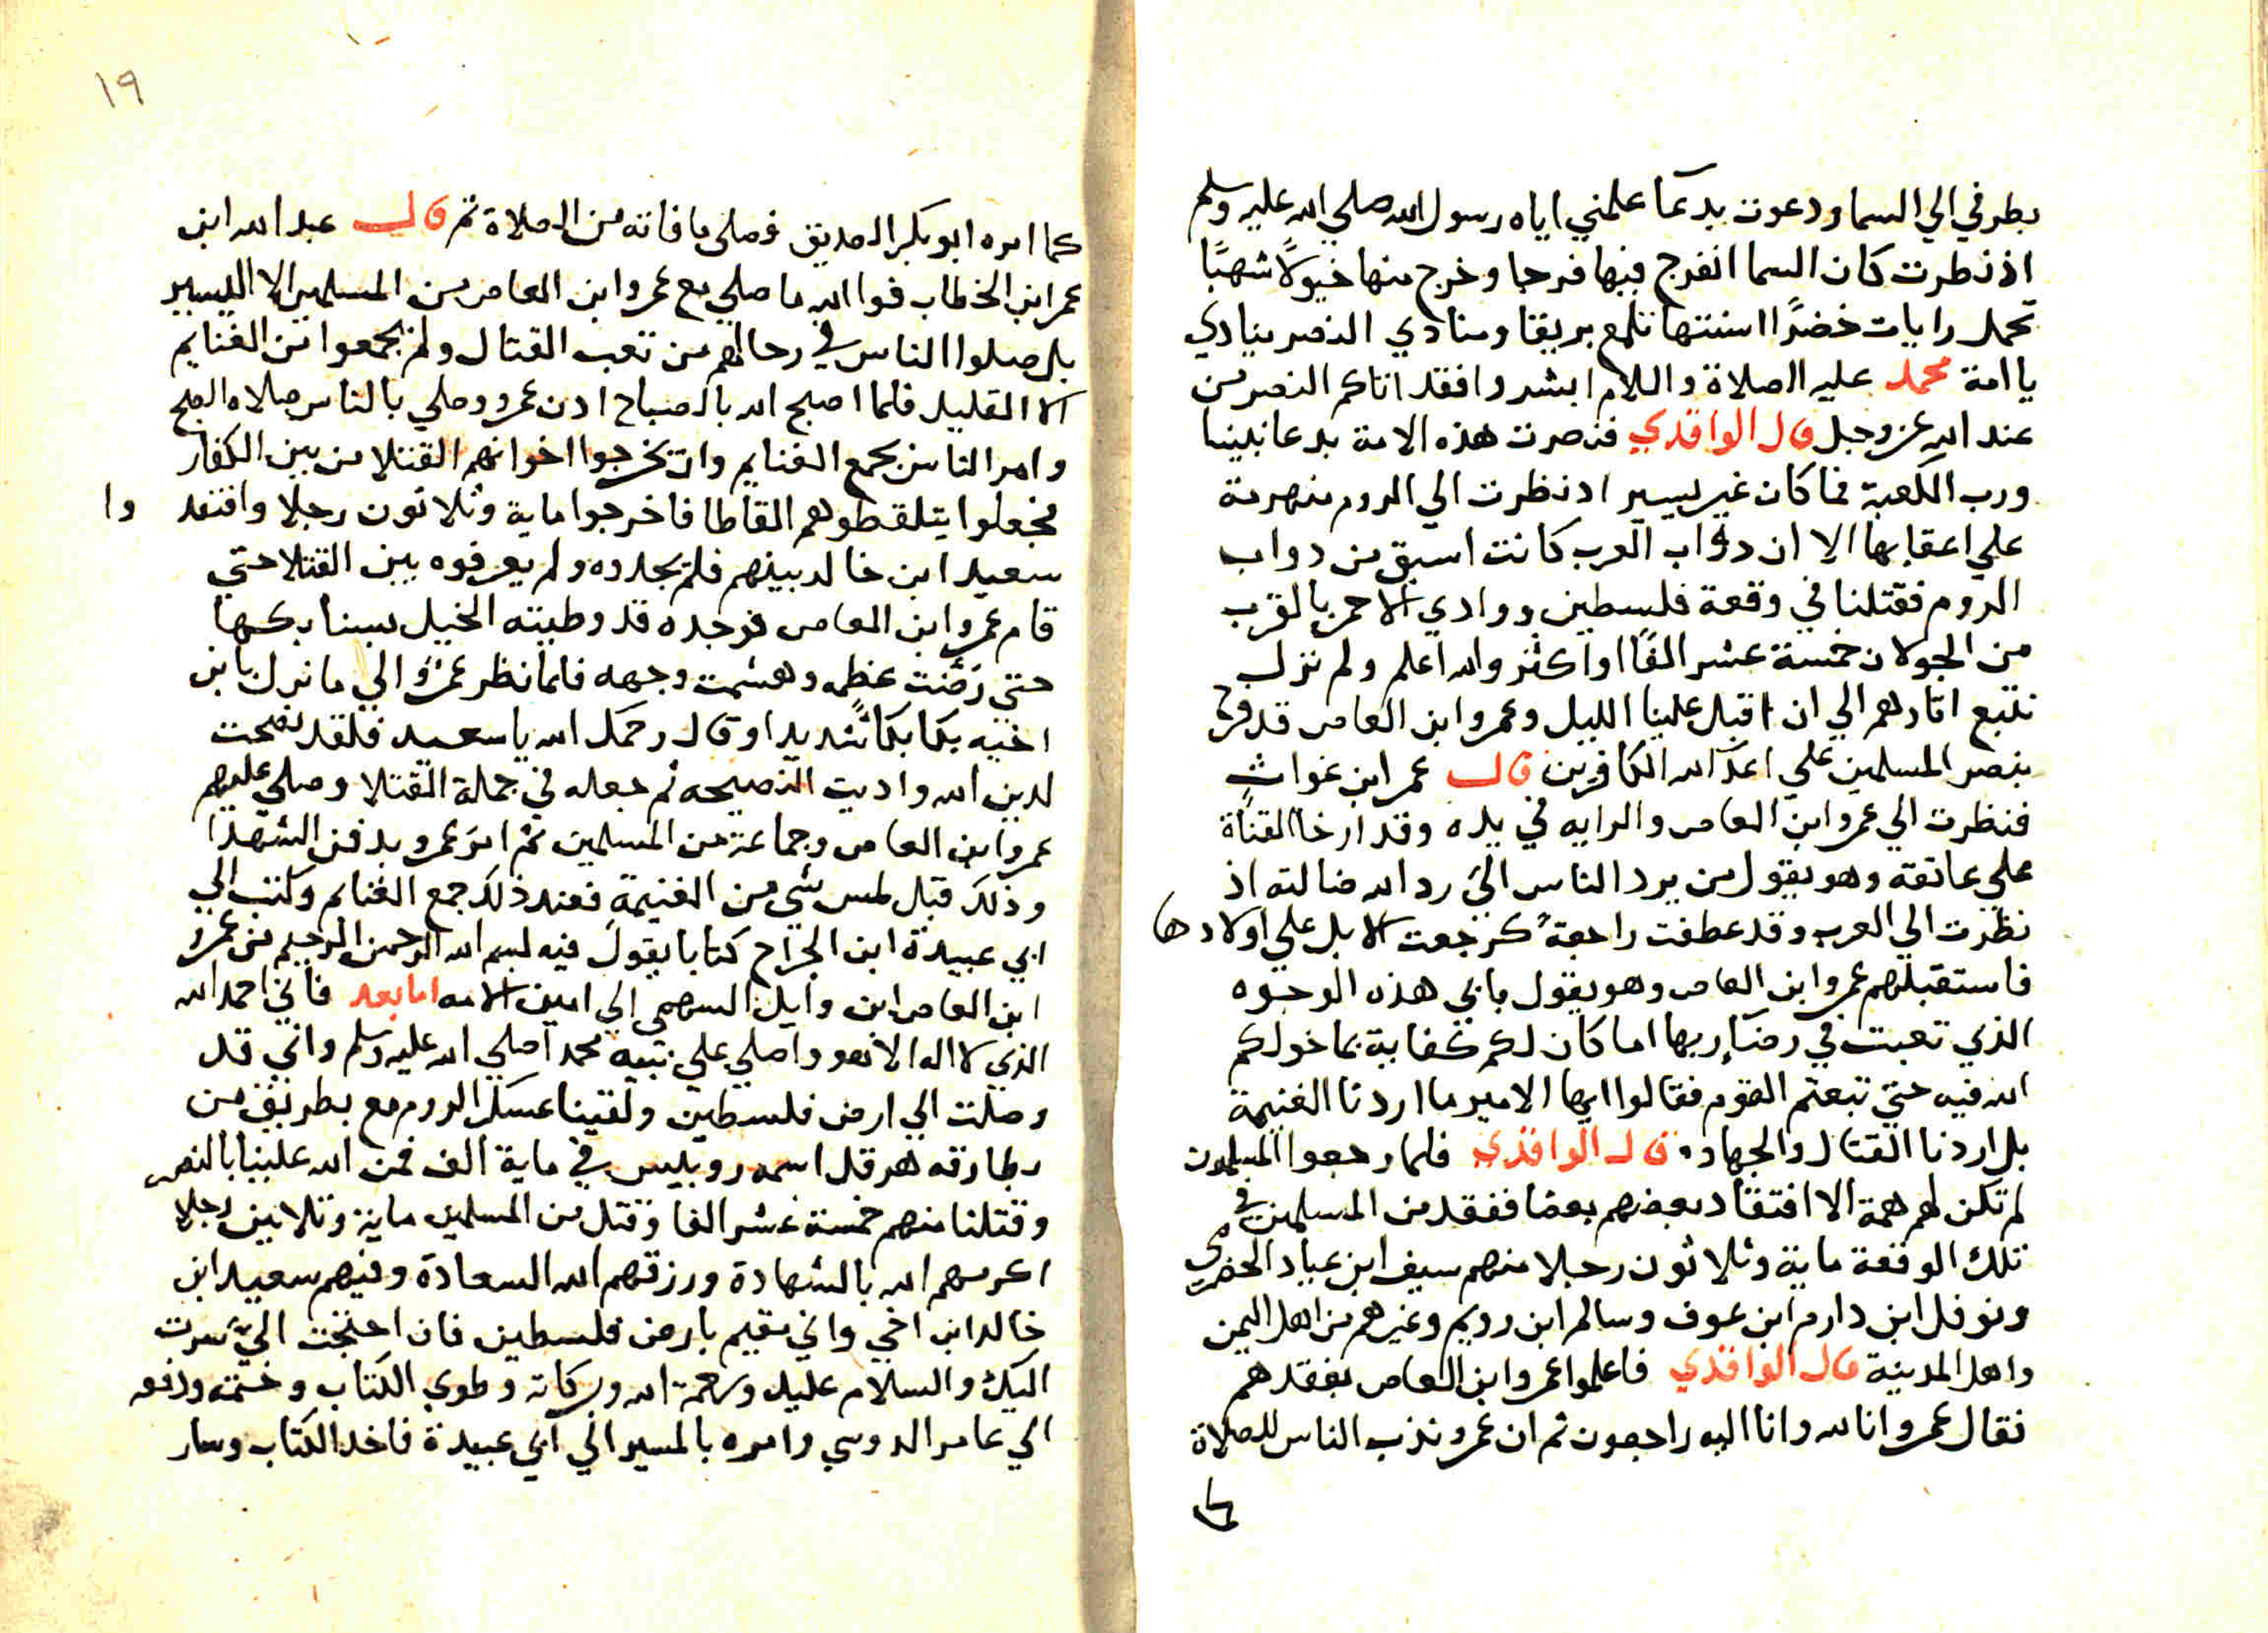 بطرفي الي السما ودعوت بدعا علمني اياه رسول الله صلي الله عليه وسلم
اذ نظرت كان السما انفرج فيها فرجا وخرج منها خيولًا شهبًا
تحمل رايات خضرًا اسنتها تلمع بريقا ومنادي النصر ينادي
يا امة محمد عليه الصلاة والسلام ابشروا فقد اتاكم النصر من
عند الله عز وجل قال الواقدي فنصرت هذه الامة بدعا نبينا
ورب الكعبة فما كان غير يسير اذ نظرت الي الروم منهزمة
علي اعقابها الا ان دواب العرب كانت اسبق من دواب
الروم فقتلنا في وقعة فلسطين ووادي الاحمر بالقرب
من الجولان خمسة عشر الفًا او اكثر والله اعلم ولم نزل
نتبع اثارهم الي ان اقبل علينا الليل وعمروا ابن العاص قد فرح
بنصر المسلمين علي اعدآ الله الكافرين قال عمر ابن غواث
فنظرت الي عمروا ابن العاص والرايه في يده وقد ارخا القناة
علي عاتقة وهو يقول من يرد الناس الي رد الله ضالته اذ
نظرت الي العرب وقد عطفت راجعةً كرجعت الابل علي اولادها
فاستقبلهم عمروا ابن العاص وهو يقول بابي هذه الوجوه
الذي تعبت في رضا ربها اما كان لكم كفاية بما خولكم
الله فيه حتي تبعتم القوم فقالوا ايها الامير ما اردنا الغنيمة
بل اردنا القتال والجهاد قال الواقدي فلما رجعوا المسلمون
لم تكن لهم همة الا افتقاد بعضهم بعضا ففقد من المسلمين في
تلك الوقعة ماية وثلاثون رجلا منهم سيف ابن عباد الحضرمي
ونوفل ابن دارم ابن عوف وسالم ابن رويم وغيرهم من اهل اليمن
واهل المدينة قال الواقدي فاعلموا عمروا ابن العاص بفقدهم
فقال عمروا انا لله وانا اليه راجعون ثم ان عمرو ندب الناس للصلاة
١٩
كما امره ابو بكر الصديق فصلي ما فاته من الصلاة ثم قال عبد الله ابن
عمر ابن الخطاب فوا الله ما صلي مع عمروا ابن العاص من المسلمين الا اليسير
بل صلوا الناس في رحالهم من تعب القتال ولم يجمعوا من الغنايم
الا القليل فلما اصبح الله بالصباح اذن عمرو وصلي بالناس صلاه الصبح
وامر الناس بجمع الغنايم وان يخرجوا اخوانهم القتلا من بين الكفار
فجعلوا يتلقطوهم القاطا فاخرجوا ماية وثلاثون رجلا وافتقد وا
سعيد ابن خالد بينهم فلم يجدوه ولم يعرفوه بين القتلا حتي
قام عمروا ابن العاص فوجده قد وطيته الخيل بسنابكها
حتي رضت عظمه وهشمت وجهه فلما نظر عمرو الي ما نزل بابن
اخيه بكا بكاً شديدا وقال رحمك الله يا سعيد فلقد نصحت
لدين الله واديت النصيحه ثم جعله في جملة القتلا وصلي عليهم
عمروا ابن العاص وجماعة من المسلمين ثم امر عمرو بدفن الشهدا
وذلك قبل لمس شي من الغنيمة فعند ذلك جمع الغنايم وكتب الي
ابي عبيدة ابن الجراح كتابا يقول فيه بسم الله الرحمن الرحيم من عمرو
ابن العاص ابن وايل السهمي الي امين الامه اما بعد فاني احمد الله
الذي لا اله الا هو واصلي علي نبيه محمد صلي الله عليه وسلم واني قد
وصلت الي ارض فلسطين ولقينا عسكر الروم مع بطريق من
بطارقه هرقل اسمه روبيس في ماية الف فمن الله علينا بالنصر
وقتلنا منهم خمسة عشر الفا وقتل من المسلمين ماية وثلاثين رجلا
اكرمهم الله بالشهادة ورزقهم الله السعادة وفيهم سعيد ابن
خالد ابن اخي واني مقيم بارض فلسطين فان احتجت الي سرت
اليك والسلام عليك ورحمة الله وبركاته وطوي الكتاب وختمه ودفعه
الي عامر الدوسي وامره بالمسير الي ابي عبيدة فاخد الكتاب وسار